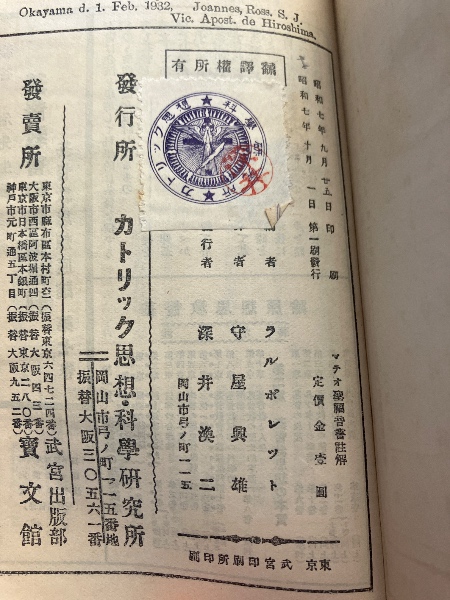 Okayama d. 1. Feb. 1932, Joannes, Ross. S. J.
Vic. Apost. de Hiroshima.
飜譯權所有
昭和七年九月廿五日印刷
昭和七年十月一日第一刷發行
マテオ聖福音書註解
定價金壹圓
者 ラルボレット
者 守屋興雄
行者 深井渙二
岡山市弓ノ町一一五
カトリック思想 科學研究所
發行所 カトリック思想・科學研究所
岡山市弓ノ町一一五番地
振替大阪三〇五六一番
發賣所
東京市麻布區本村町 (振替東京六四七二四番) 武宮出版部
大阪市西區阿波堀通四 (振替大阪四三番)
東京市日本橋區本銀町 (振替東京二八〇番) 寶文館
神戸市元町通五丁目 (振替大阪九五二番)
東京 武宮印刷所印刷